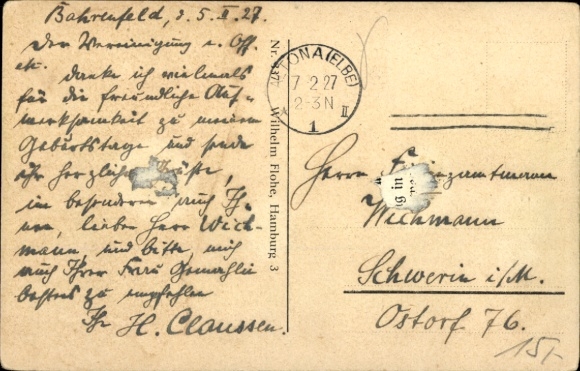 Bahrenfeld, d. 5. II. 27.
Der Vereinigung e. Off.
etc. danke ich vielmals
für die freundliche Auf-
merksamkeit zu meinem
Geburtstage und sende
ihr herzliche Grüße,
im besonderen auch Ih-
nen, lieber Herr Wich-
mann, und bitte, mich
auch Ihrer Frau Gemahlin
bestens zu empfehlen
Ihr H. Claussen.
Wilhelm Flohe, Hamburg 3
ALTONA (ELBE)
7 2 27
2-3 N
II
1
Herrn
Wichmann
Schwerin i/M.
Ostorf 76.
15/-